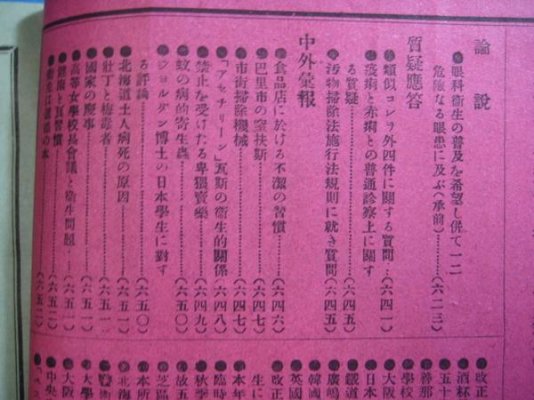 論說
●眼科衞生の普及を希望し併て一二
危險なる眼患に及ぶ(承前)…(六二三)
質疑應答
●類似コレラ外四件に關する質問…(六四一)
●疫痢と赤痢との普通診察上に關す
る質疑…(六四五)
●汚物掃除法施行法規則に就き質問(六四五)
中外彙報
●食品店に於ける不潔の習慣…(六四六)
●巴里市の窒扶斯…(六四七)
●市街掃除機械…(六四七)
●「アセチリーン」瓦斯の衞生的關係(六四八)
●禁止を受けたる卑猥賣藥…(六四九)
●蚊の病的寄生蟲…(六五〇)
●ジョルダン博士の日本學生に對す
る評論…(六五〇)
●北海道土人病死の原因…(六五一)
●壯丁と梅毒者…(六五一)
●國家の慶事…(六五一)
●高等女學校長會議と衞生問題…(六五一)
●健康と良習慣…(六五二)
●改正
●酒杯
●五十
●善那
●學校
●大阪
●日本
●鐵道
●廣嶋
●韓國
●英國
●改正
生に
●本年
●臨時
●秋季
●故五
●芝區
●本所
●北海
●大學
●大阪
●中央